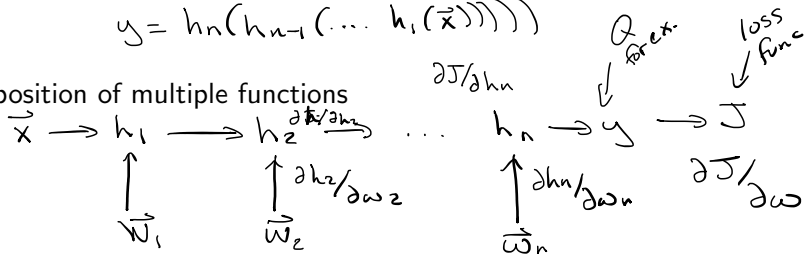 y = hₙ(hₙ₋₁(.... h₁(x⃗)))))
Q for ex.
loss func
∂J/∂hₙ
position of multiple functions
x⃗ → h₁ → h₂ → ... hₙ → y → J
∂h₂/∂w₂ ∂hₙ/∂wₙ ∂J/∂w
w⃗₁ w⃗₂ w⃗ₙ